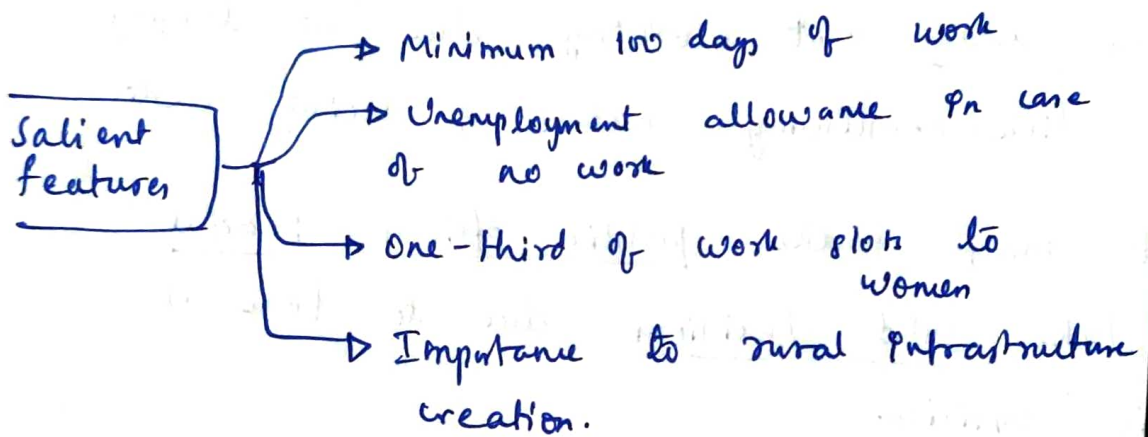 Salient
features
Minimum 100 days of work
Unemployment allowance in case
of no work
One-third of work slots to
women
Importance to rural infrastructure
creation.